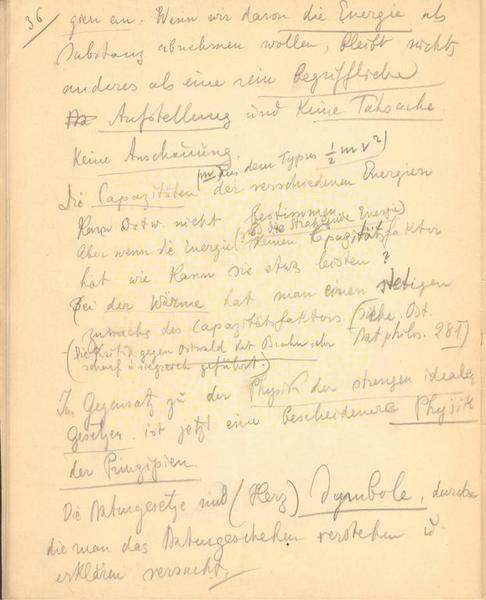 36/ gieen an. Wenn wir davon die Energie als
Substanz abnehmen wollen, bleibt nichts
anderes als eine rein begriffliche
Aufstellung und keine Tatsache.
Keine Anschauung.
(nur bei dem Typus ½ m v²)
Die Capazitäten der verschiedenen Energien
kann Ostw. nicht bestimmen
Aber wenn die Energie (die strahlende Energie) keinen Capazitätsfaktor
hat wie kann sie etwas leisten?
(Bei der Wärme hat man einen stetigen
zuwachs des Capazitätsfaktors. (Siehe Ost.
Natphilos. 281)
(Die Kritik gegen Ostwald hat sehr
scharf u siegreich geführt.)
Im Gegensatz zu der Physik der strengen idealen
Gesetzen ist jetzt eine bescheidenere Physik
der Prinzipien.
Die Naturgesetze sind (Herz) Symbole, durch
die man das Naturgeschehen verstehen u.
erklären versucht.